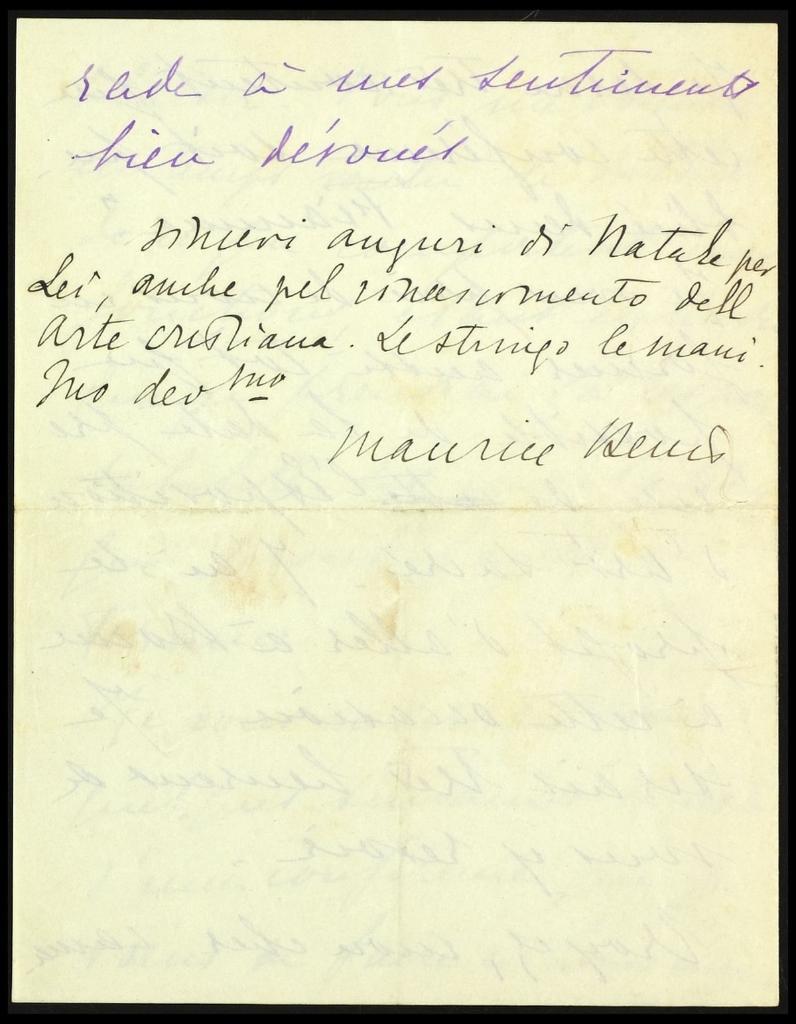 rade à mes sentiments
bien dévoués
sinceri auguri di Natale per
Lei, anche pel rinascimento dell
Arte cristiana. Le stringo le mani.
Suo dev mo
Maurice Denis